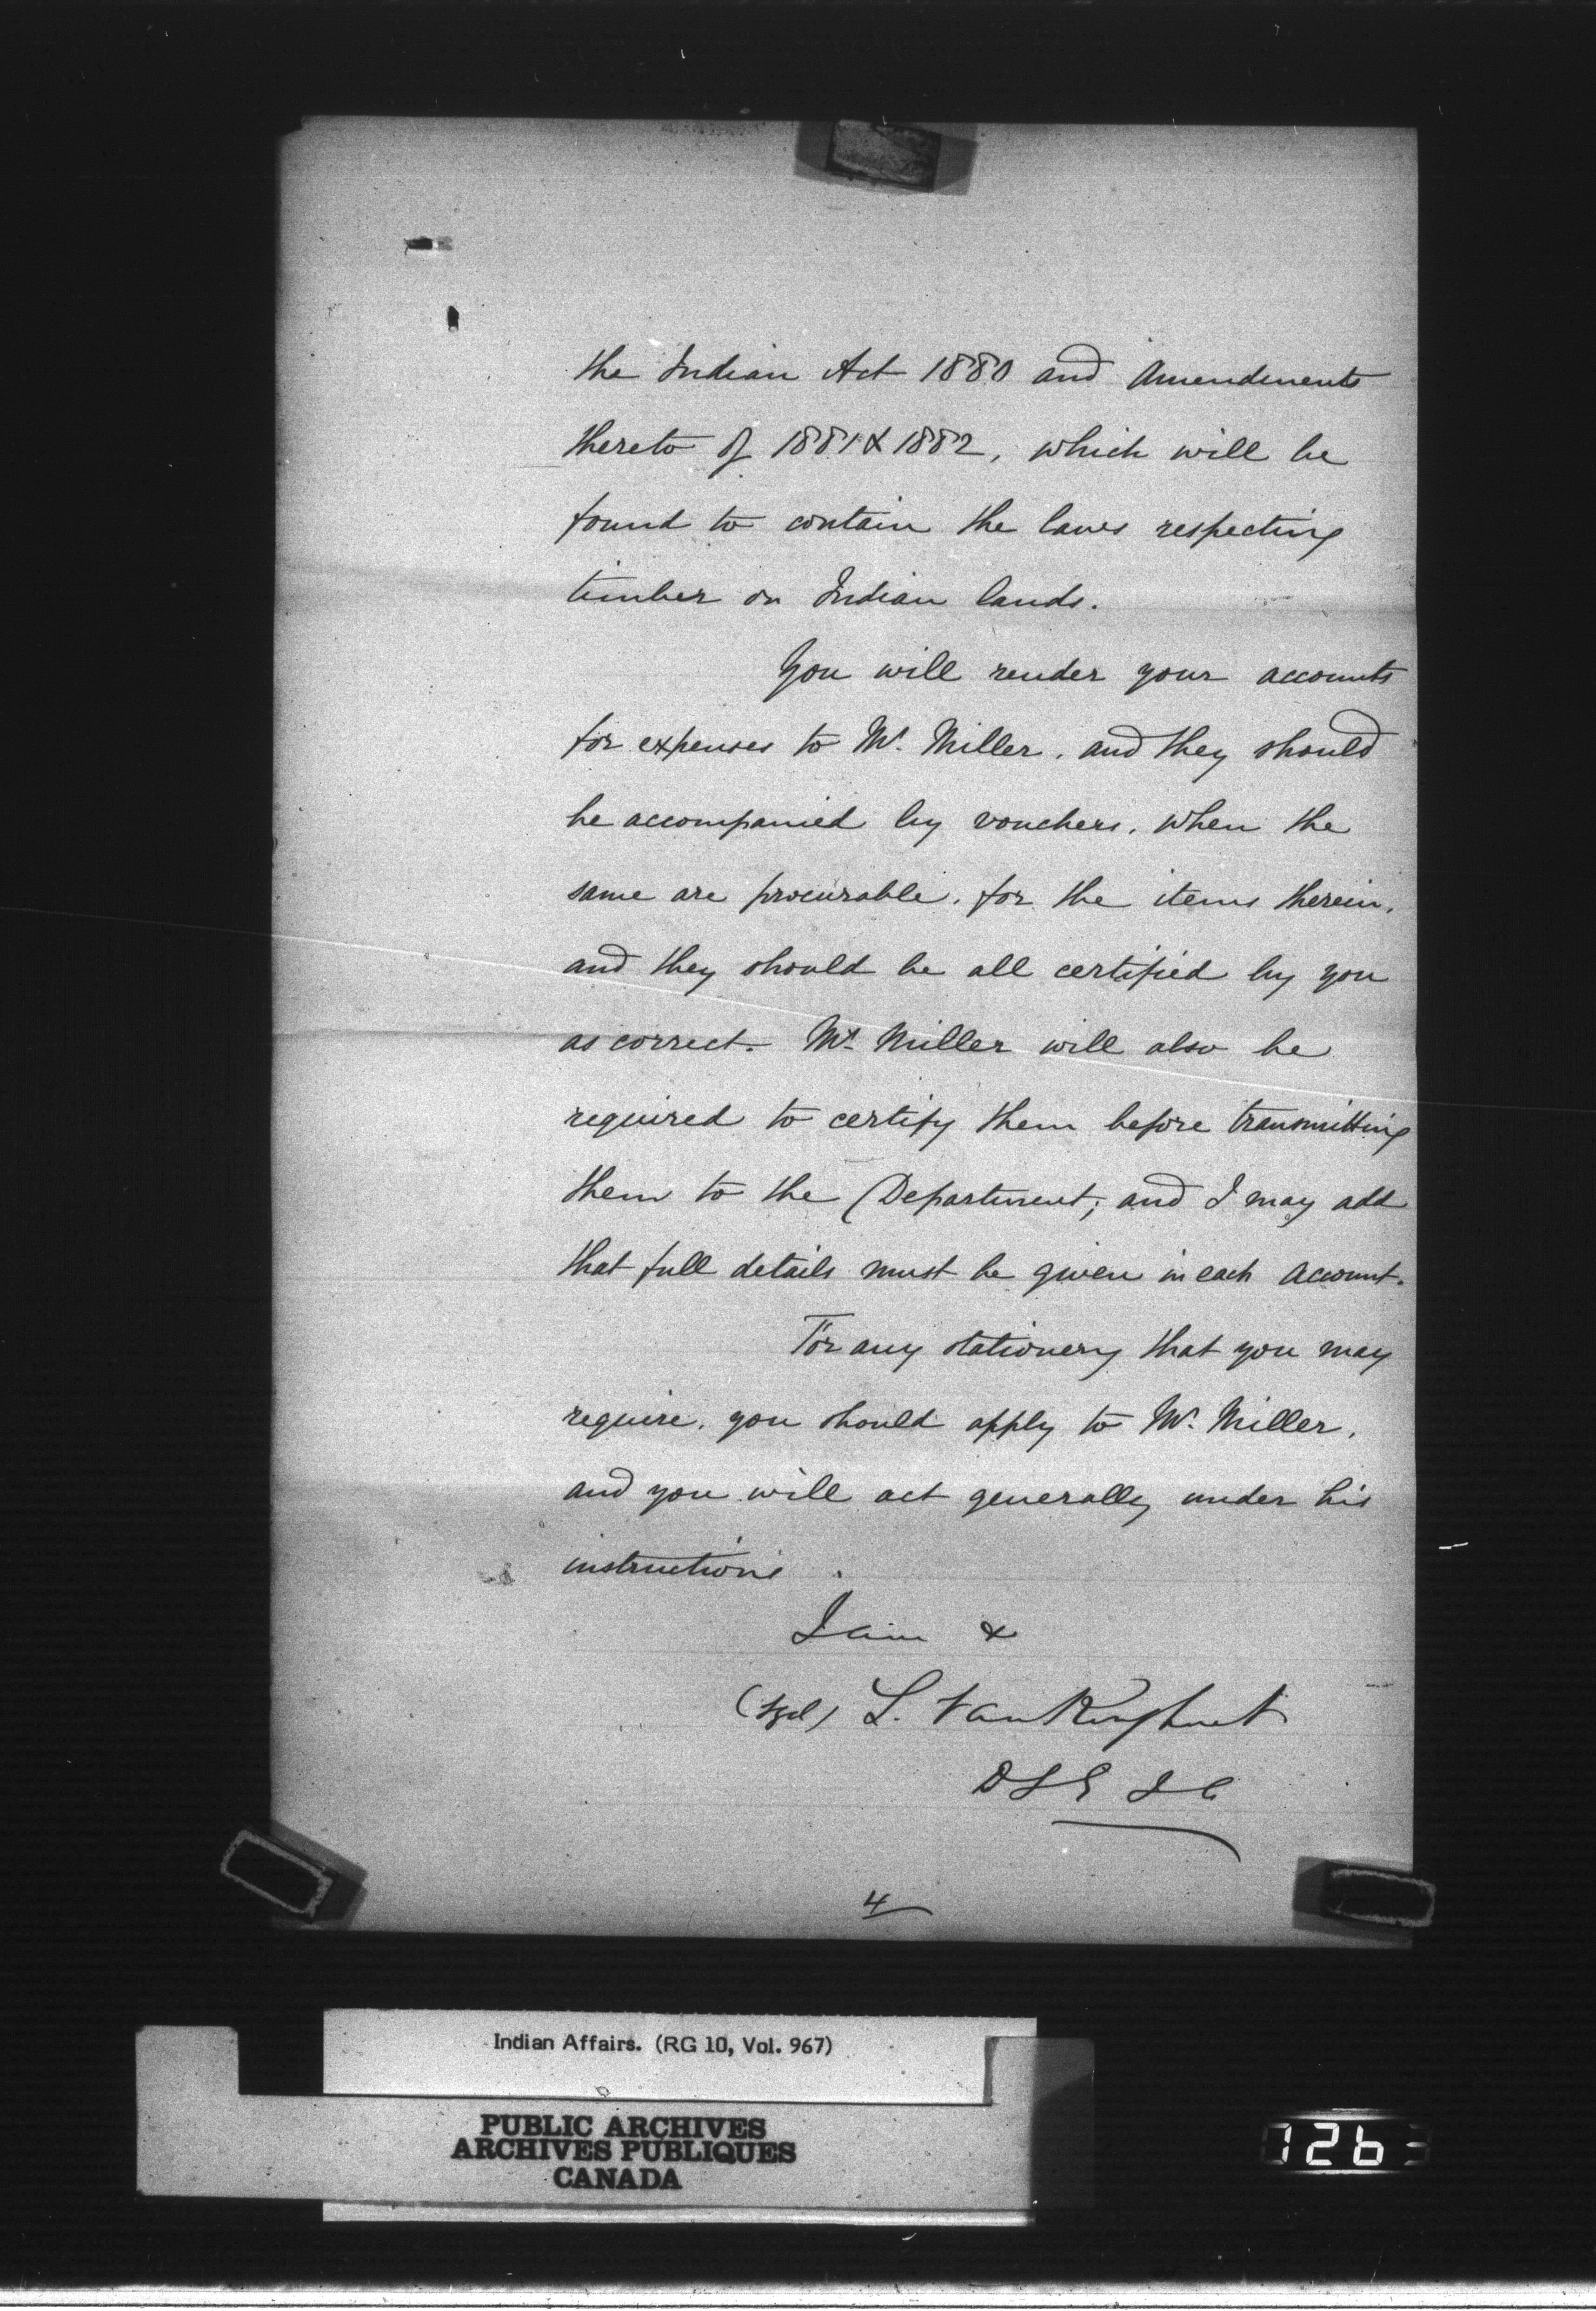 the Indian Act 1880 and Amendments
thereto of 1881 & 1882, which will be
found to contain the laws respecting
timber on Indian lands.
You will render your accounts
for expenses to Mr. Miller, and they should
be accompanied by vouchers, when the
same are procurable, for the items therein,
and they should be all certified by you
as correct. Mr. Miller will also be
required to certify them before transmitting
them to the Department; and I may add
that full details must be given in each account.
For any stationery that you may
require, you should apply to Mr. Miller,
and you will act generally under his
instructions.
I am &
(Sgd) L. VanKoughnet
D S G I A
4
Indian Affairs. (RG 10, Vol. 967)
PUBLIC ARCHIVES
ARCHIVES PUBLIQUES
CANADA
126